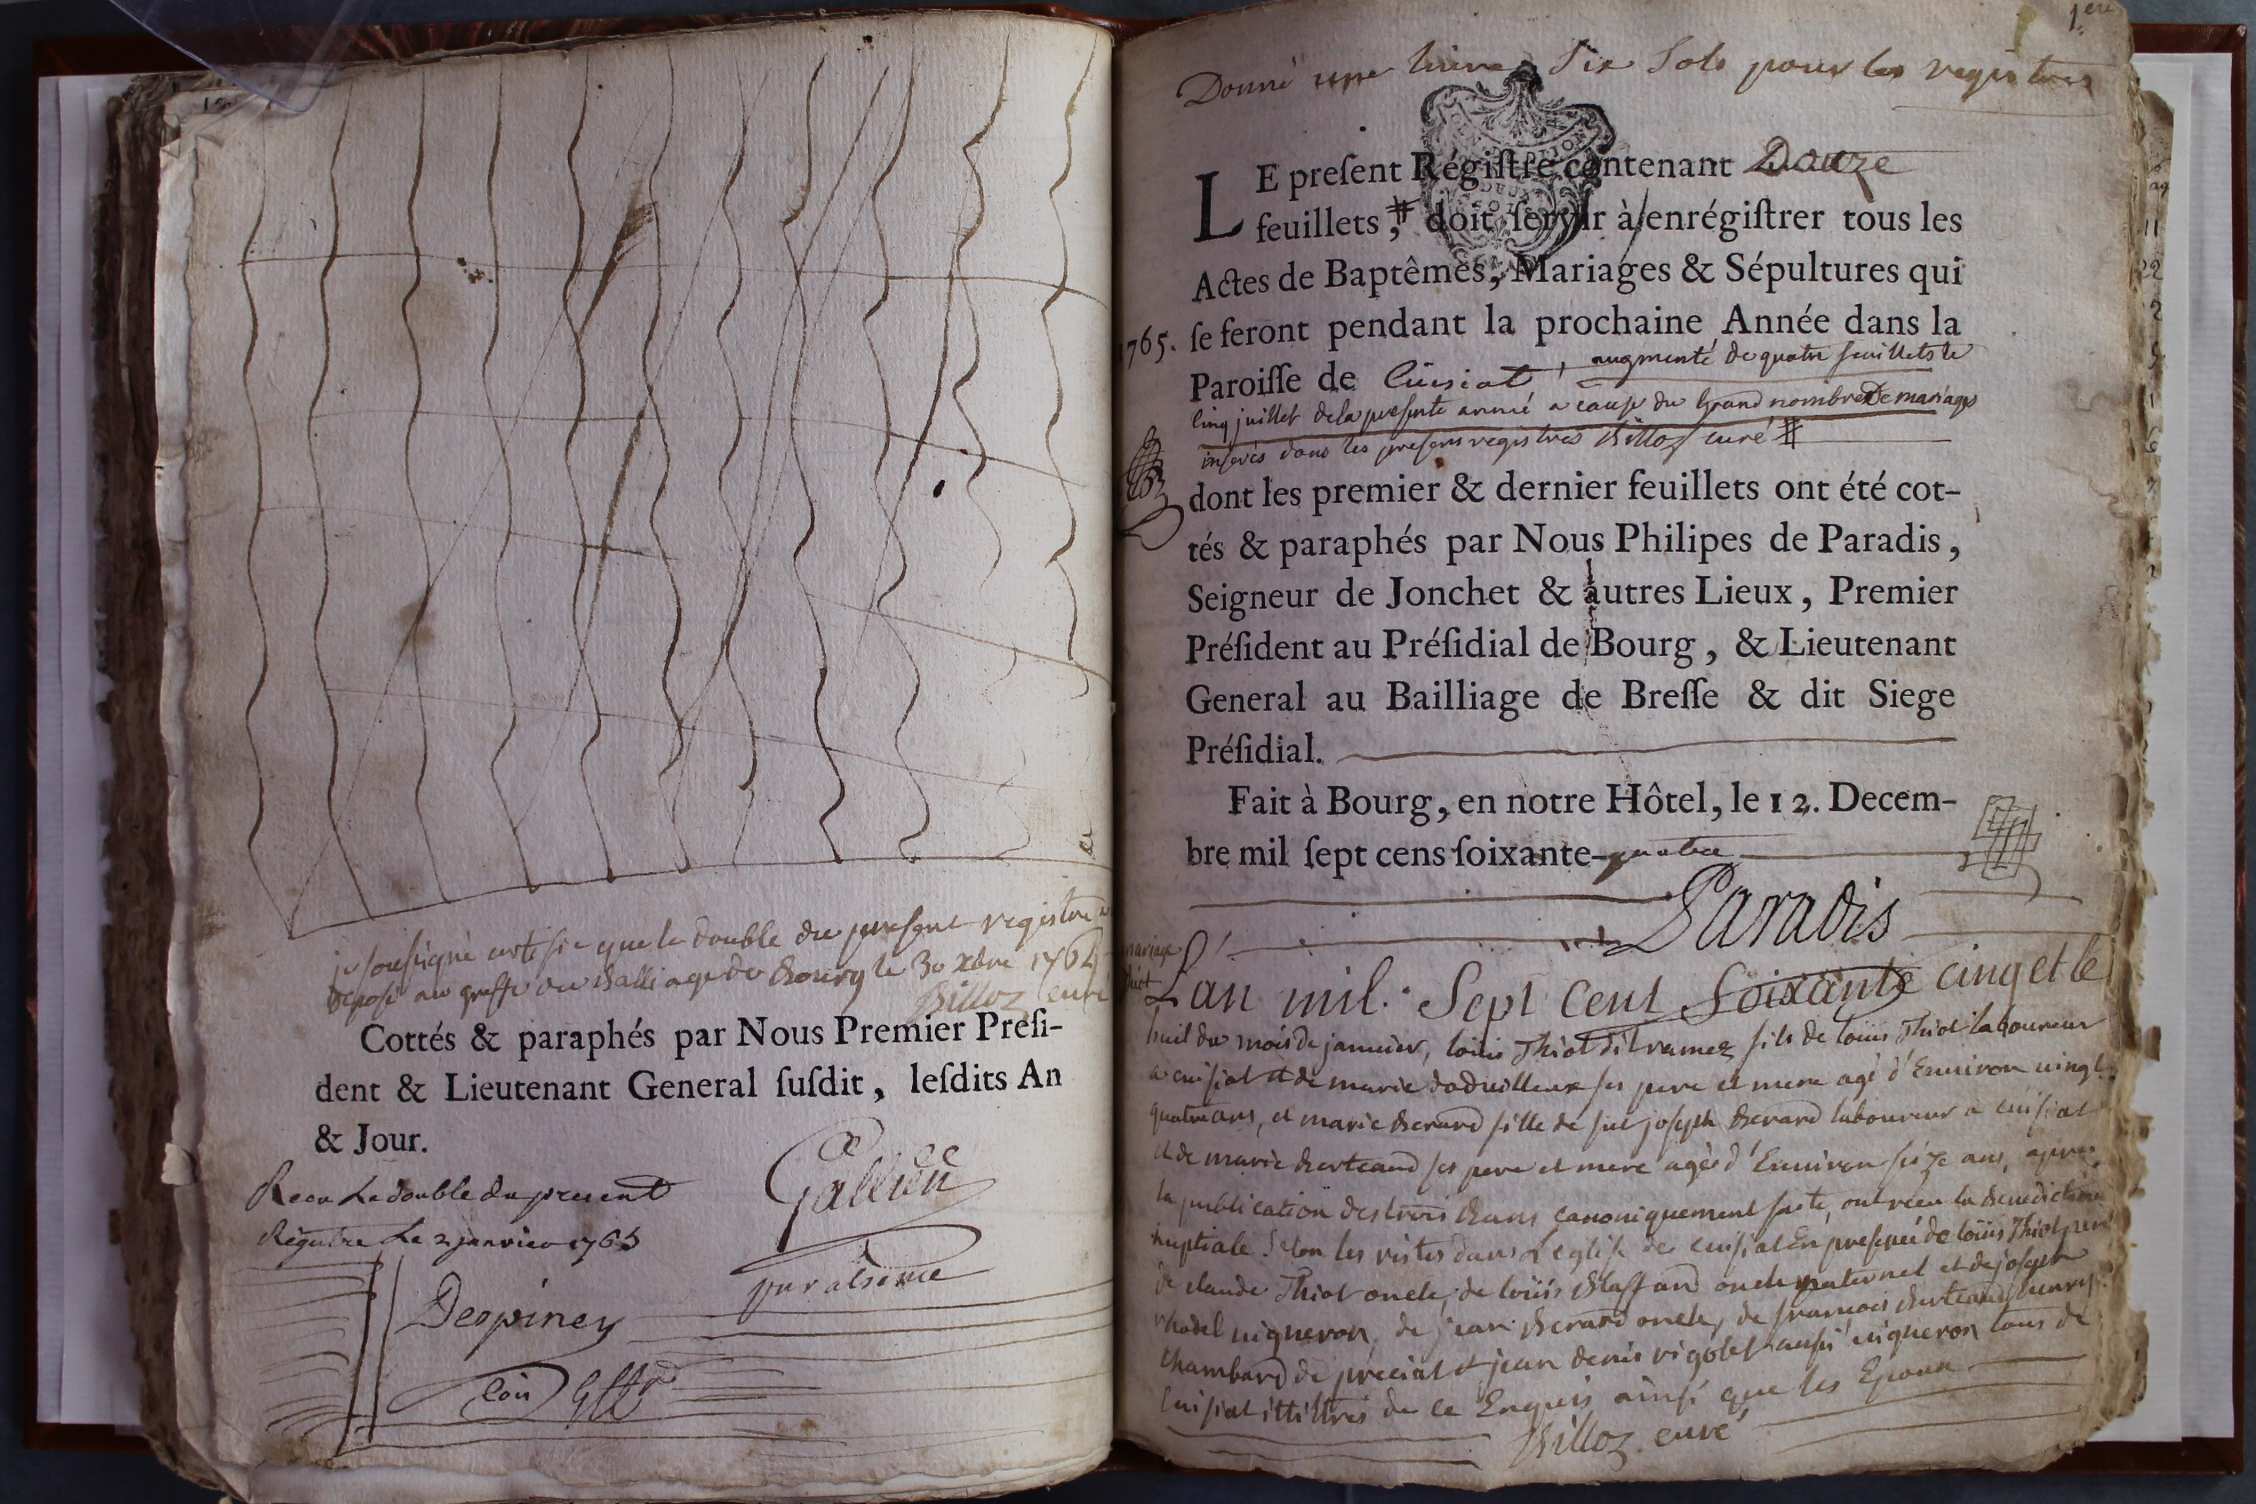 je soussigné certifie que le double du present registre a
deposé au greffe du Balliage de Bourg le 30 xbre 1764
Billoz curé
Cottés & paraphés par Nous Premier Preſi-
dent & Lieutenant General ſuſdit, leſdits An
& Jour.
Gallien
par absence
Receu Le double du present
Régistre Le 2 janvier 1765
Despiney
Con Gffr
1ere
Donné une livre Six Sols pour les registres
LE preſent Régiſtre contenant Douze
feuillets,# doit ſervir à enrégiſtrer tous les
Actes de Baptêmes, Mariages & Sépultures qui
1765. ſe feront pendant la prochaine Année dans la
Paroiſſe de Cuisiat, augmenté de quatre feuillets le
cinq juillet de la presente année a cause du Grand nombre De mariages
inserés dans les presens registres Billoz curé #
dont les premier & dernier feuillets ont été cot-
tés & paraphés par Nous Philipes de Paradis,
Seigneur de Jonchet & autres Lieux, Premier
Préſident au Préſidial de Bourg, & Lieutenant
General au Bailliage de Breſſe & dit Siege
Préſidial.
Fait à Bourg, en notre Hôtel, le 12. Decem-
bre mil ſept cens ſoixante-quatre
Paradis
mariage
L'an mil Sept Cent Soixante cinq et le
huit du mois de janvier, loüis Thiot dit ramez fils de loüis Thiot laboureur
a cuisiat et de marie dadvilleux ses pere et mere agé d'Environ vingt
quatre ans, et marie Berard fille de fut joseph Berard laboureur a cuisiat
et de marie Berteand ses pere et mere agée d'Environ seize ans, apres
la publication des trois Bans canoniquement faite, ont receu la Benediction
nuptiale Selon les ristes dans L'eglise de cuisiat En presence de loüis Thiot pere
de claude Thiot oncle, de loüis Blaffard oncle paternel et de joseph
vigneron, de jean Berard oncle, de francois Berteand henry
Chambard de preciat et jean denis rigolet aussi vigneron tous de
Cuisiat illittrés de ce Enquis ainsi que les Epoux
Billoz curé